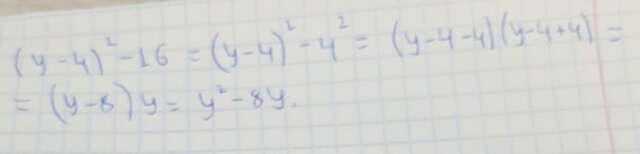 (y-4)²-16 = (y-4)²-4² = (y-4-4)(y-4+4) =
= (y-8)y = y²-8y.